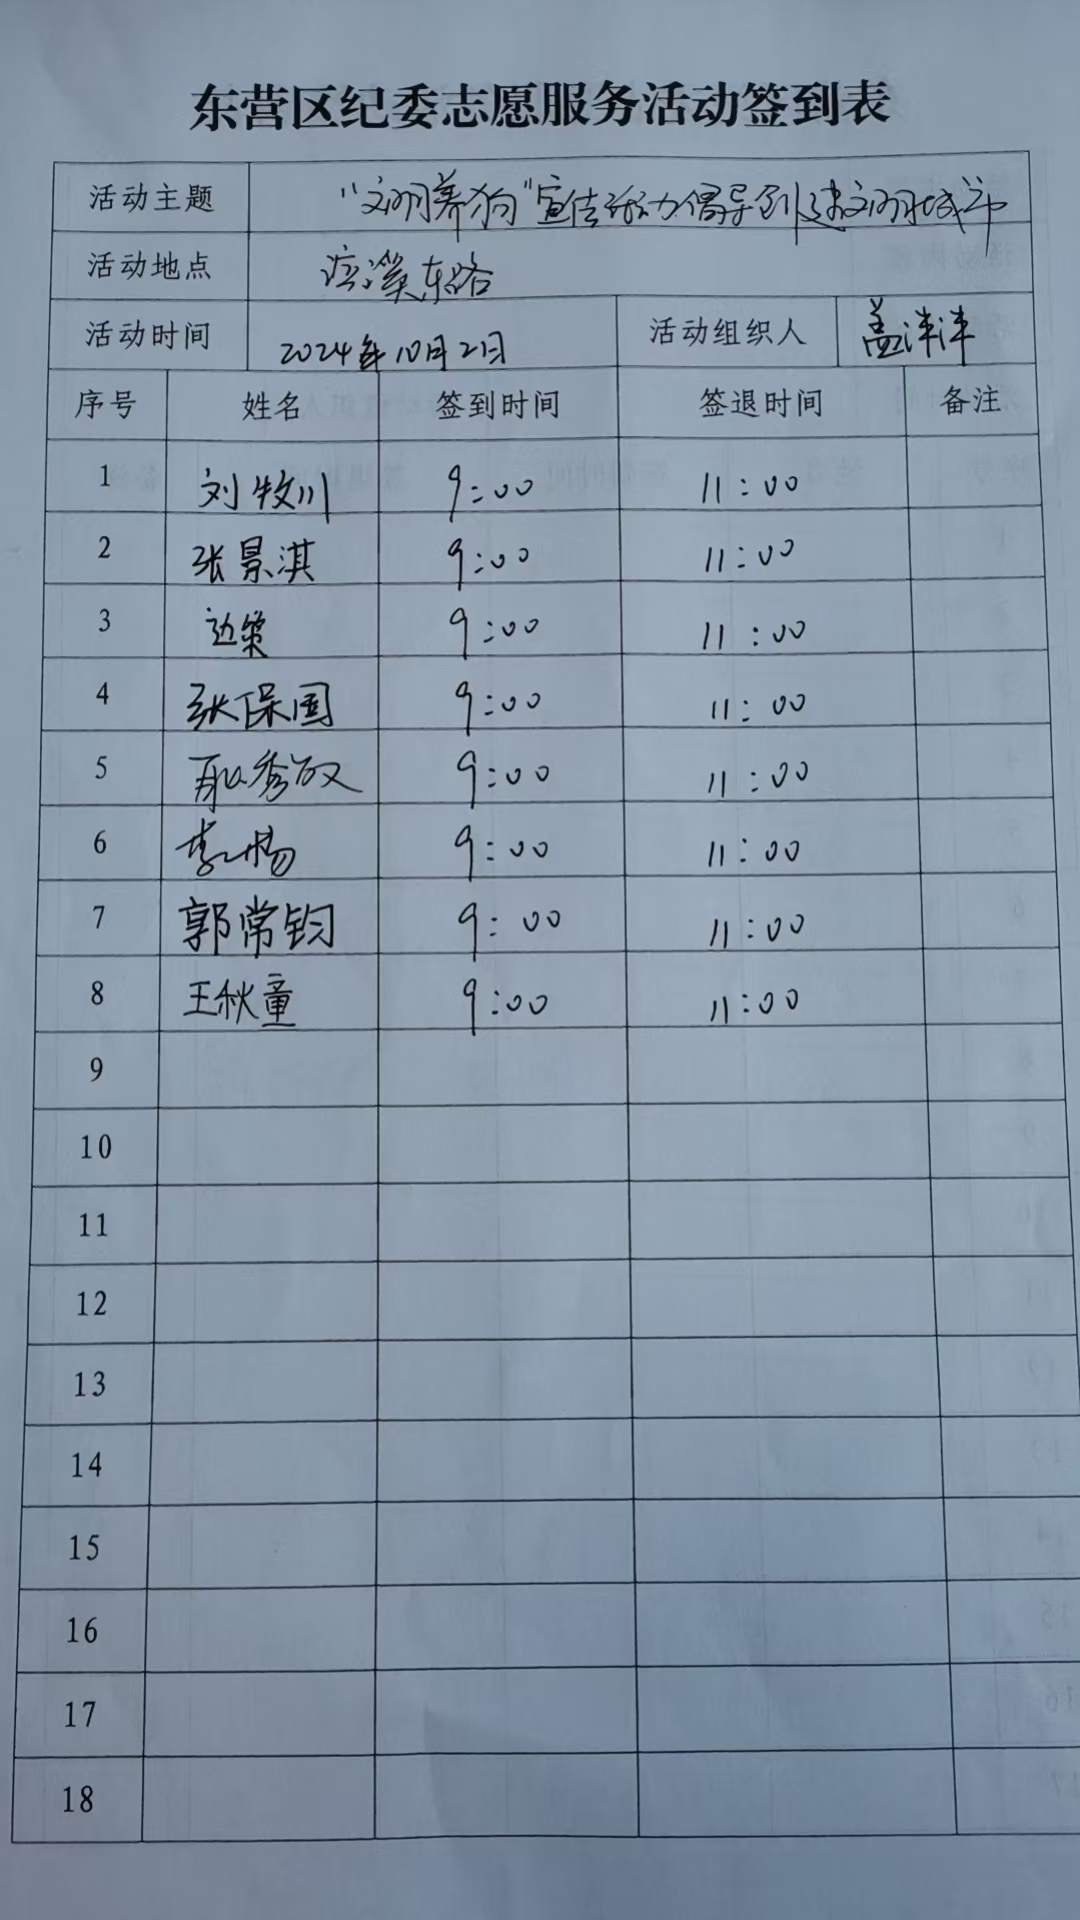 东营区纪委志愿服务活动签到表
活动主题 “文明养狗”宣传活动倡导创建文明城市
活动地点 溪东路
活动时间 2024年10月2日 活动组织人 盖洋洋
序号 姓名 签到时间 签退时间 备注
1 刘牧川 9:00 11:00
2 张景淇 9:00 11:00
3 边策 9:00 11:00
4 张保国 9:00 11:00
5 耿秀 9:00 11:00
6 李畅 9:00 11:00
7 郭常钧 9:00 11:00
8 王秋童 9:00 11:00
9
10
11
12
13
14
15
16
17
18